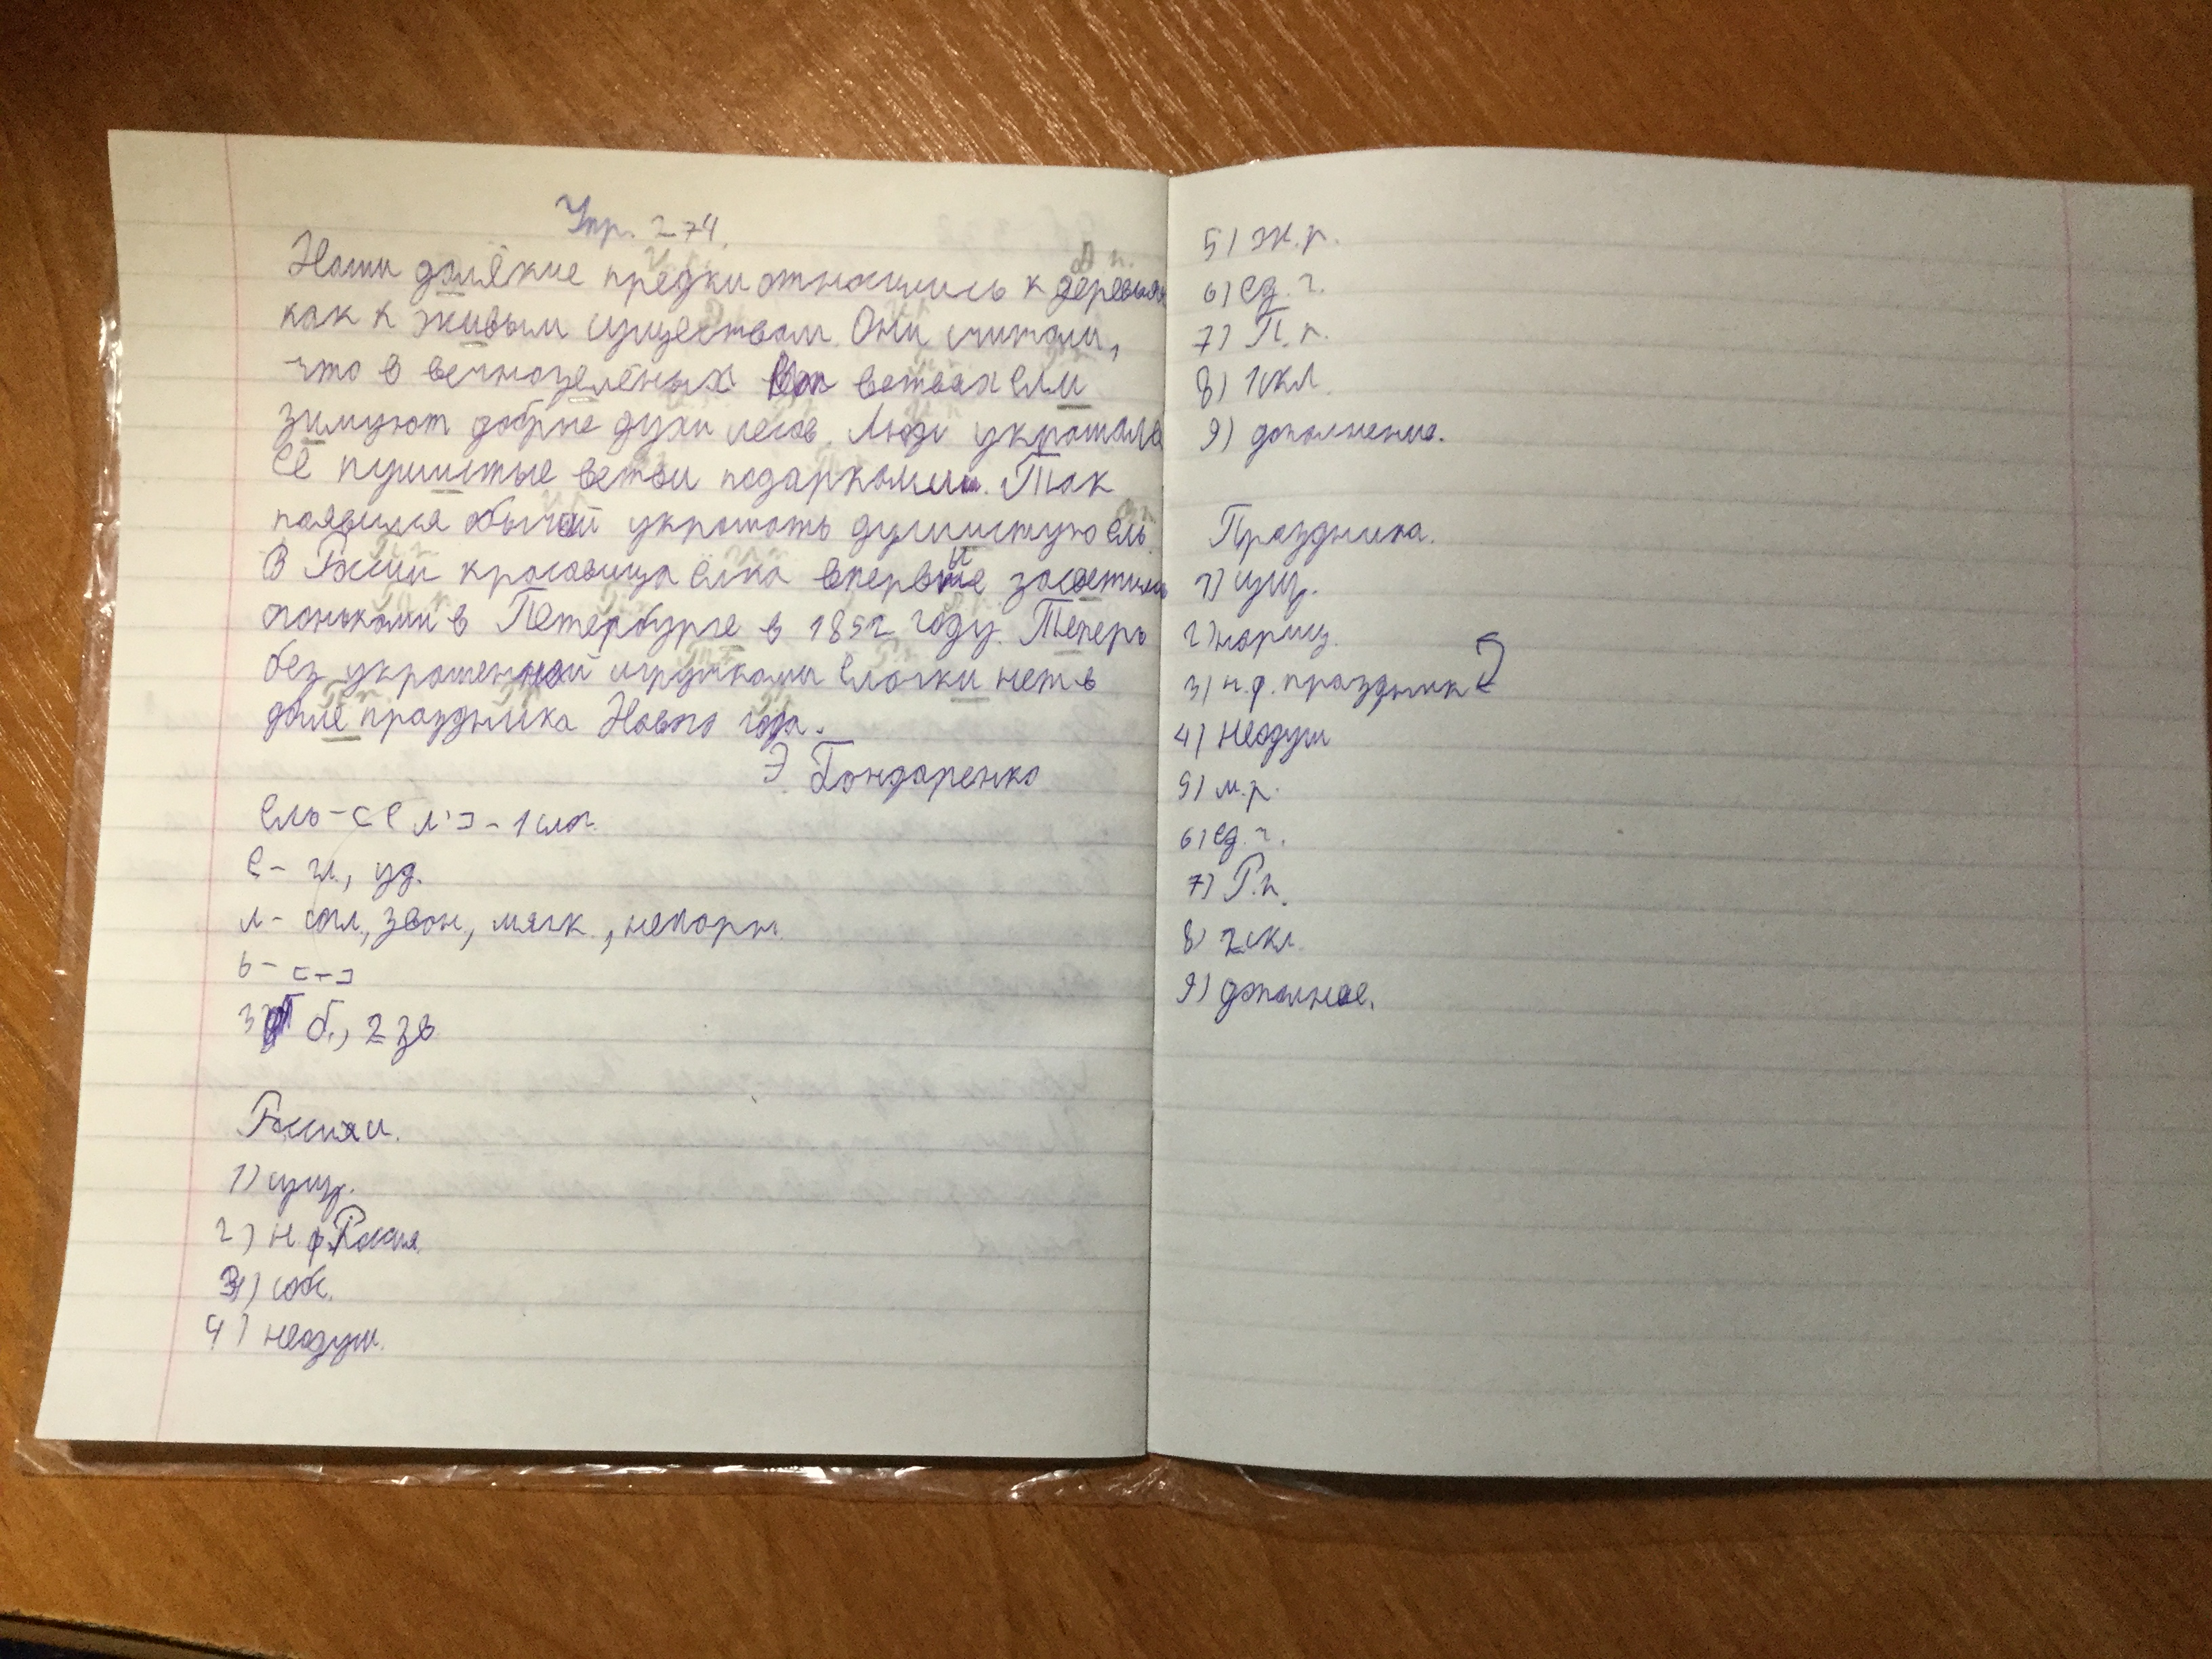 Упр. 274.
Наши далёкие предки относились к деревьям
как к живым существам. Они считали,
что в вечнозелёных ветвях ели
зимуют добрые духи лесов. Люди украшали
её пушистые ветви подарками. Так
появился обычай украшать душистую ель.
В России красавица ёлка впервые засветилась
огоньками в Петербурге в 1852 году. Теперь
без украшенной игрушками ёлочки нет в
доме праздника Нового года.
Э. Бондаренко
Ель - [е л'] - 1 слог.
е - гл., уд.
л - согл., звон., мягк., непарн.
ь - [-]
3 б., 2 зв.
России.
1) сущ.
2) н.ф. Россия.
3) соб.
4) неодуш.
5) ж.р.
6) ед.ч.
7) П.п.
8) 1 скл.
9) дополнение.
Праздника.
1) сущ.
2) нариц.
3) н.ф. праздник
4) неодуш
5) м.р.
6) ед.ч.
7) Р.п.
8) 2 скл.